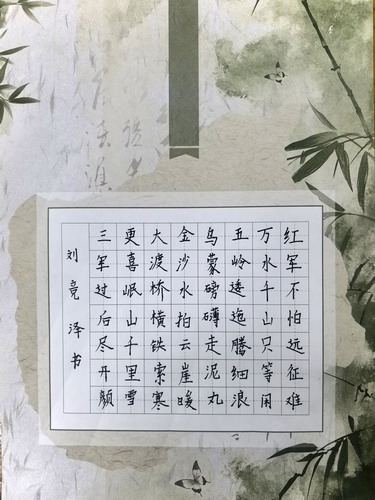 红军不怕远征难
万水千山只等闲
五岭逶迤腾细浪
乌蒙磅礴走泥丸
金沙水拍云崖暖
大渡桥横铁索寒
更喜岷山千里雪
三军过后尽开颜
刘竞泽书